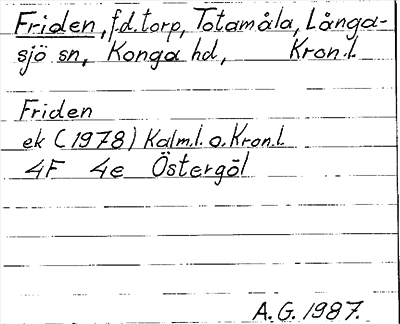 Friden, f.d. torp, Totamåla, Långa-
sjö sn, Konga hd, Kron.l.
Friden
ek (1978) Kalm.l. o. Kron.l.
4F 4e Östergöl
A.G. 1987.